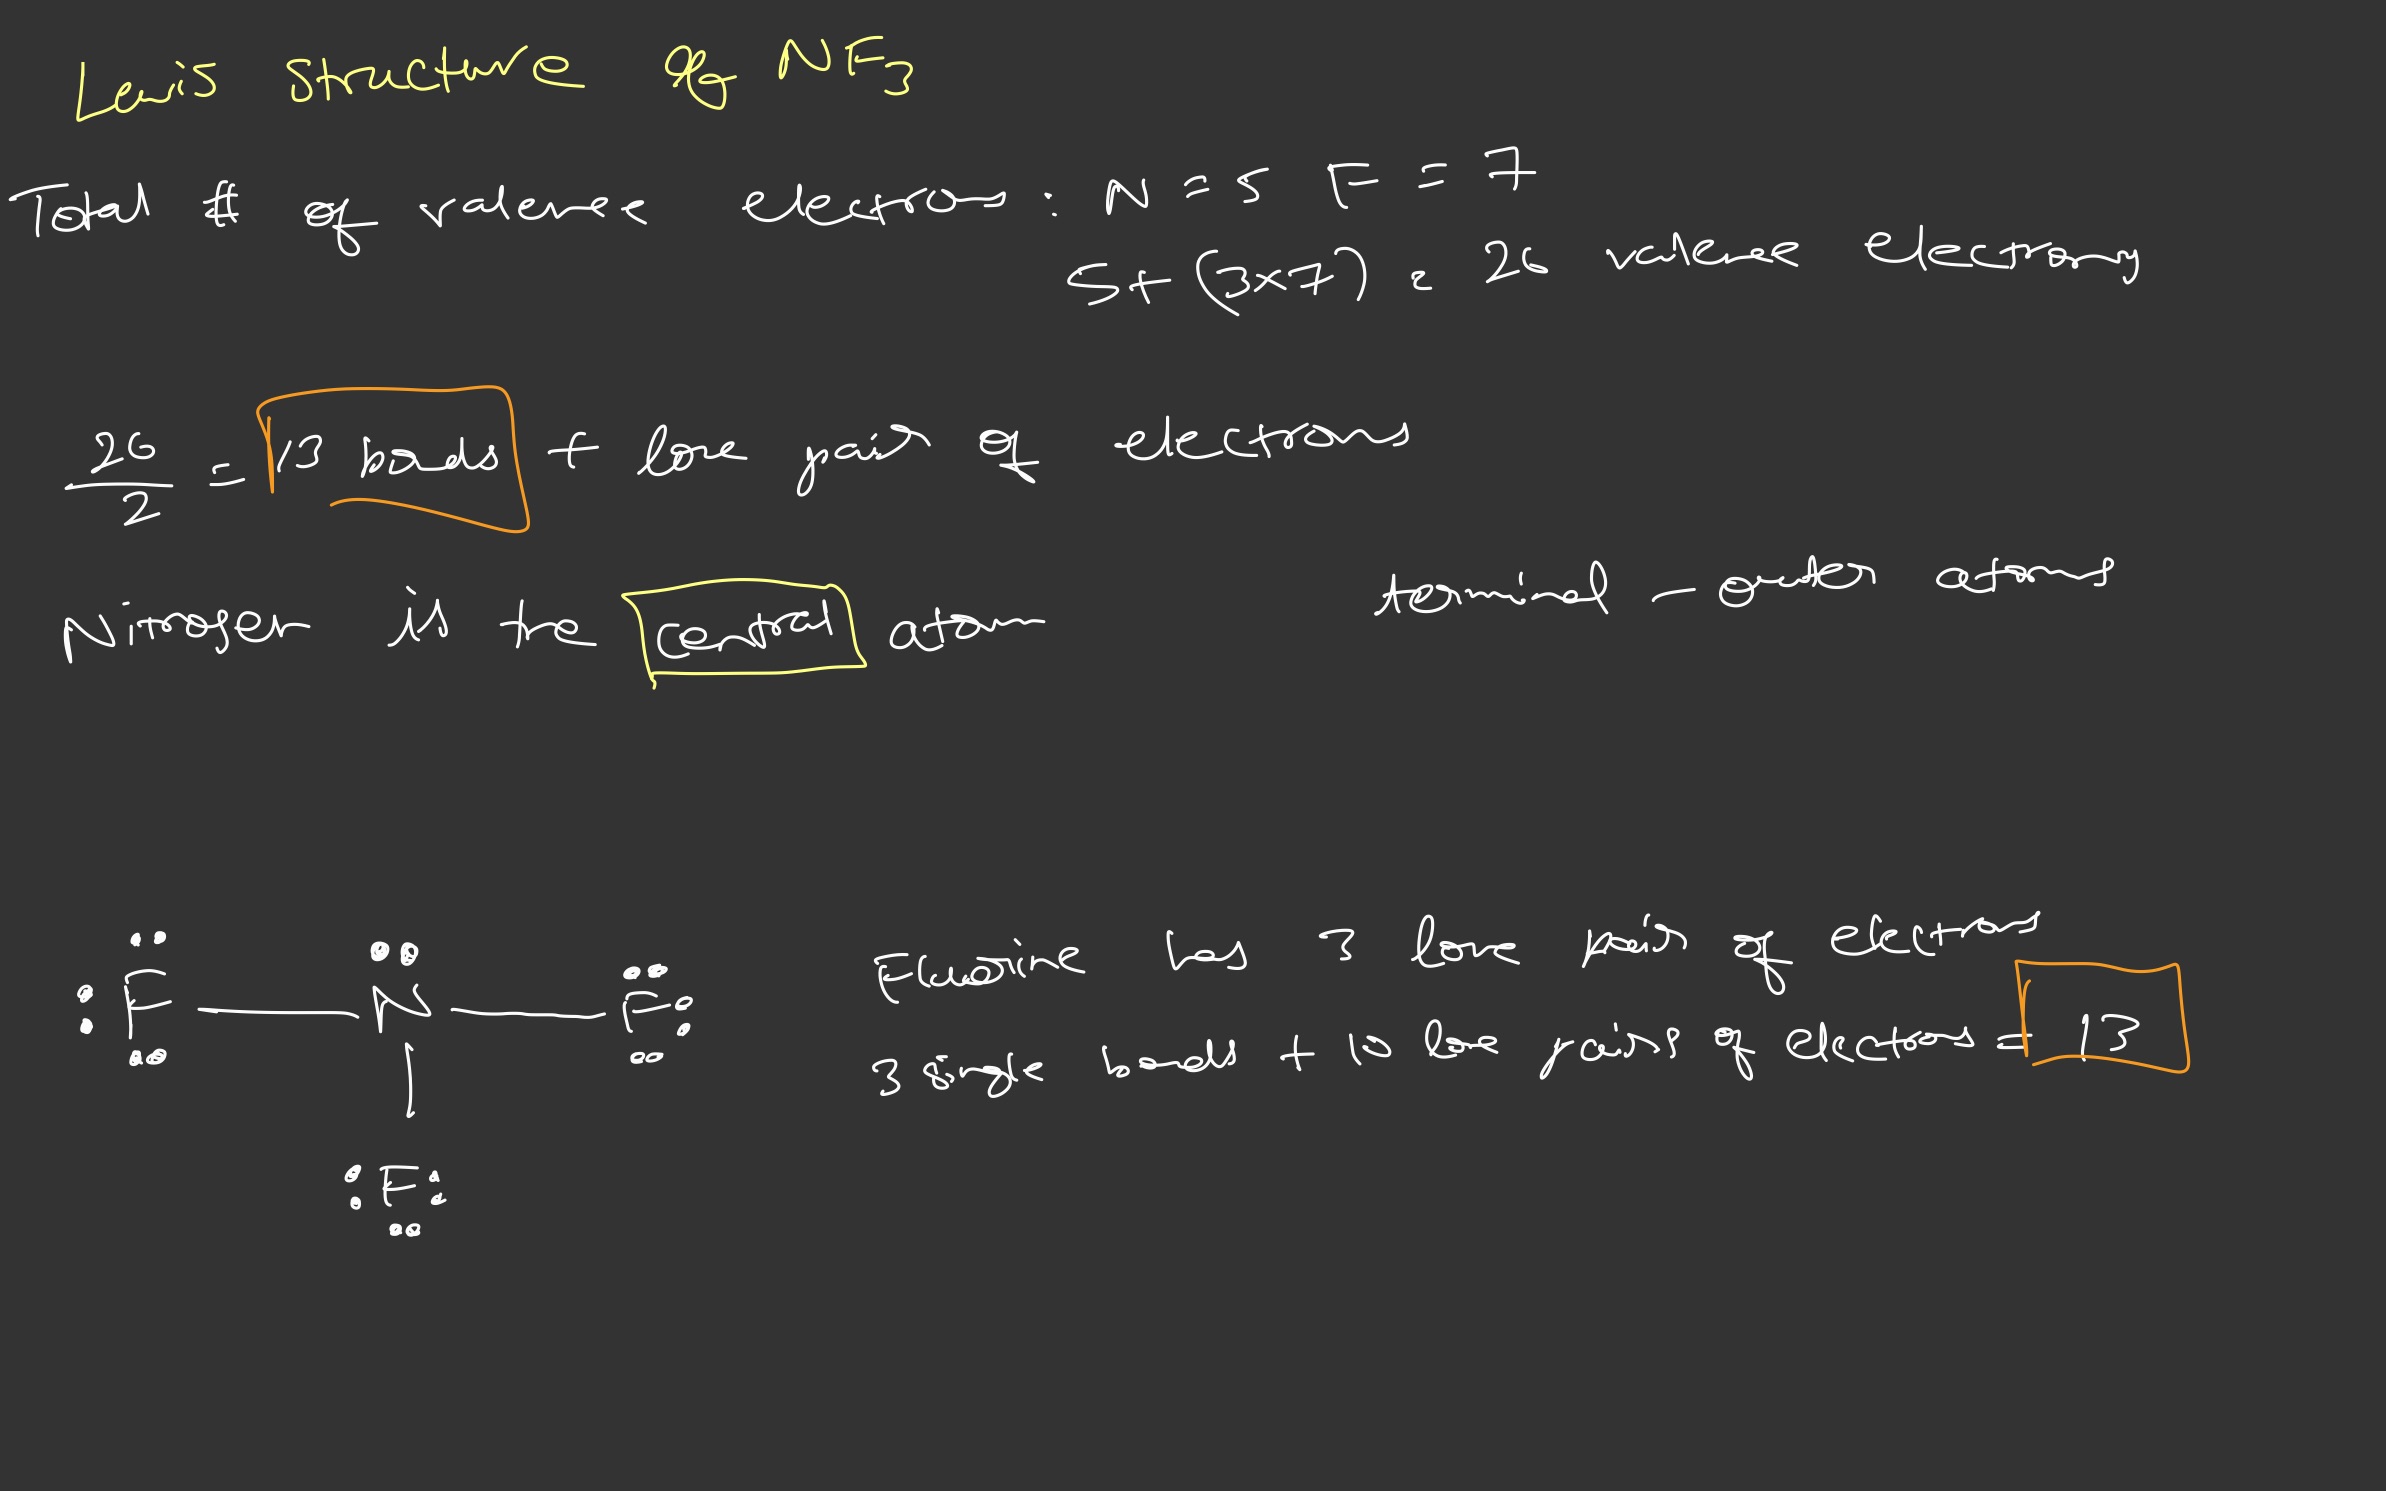 Lewis structure of NF3
Total # of valence electrons: N = 5 F = 7
5 + (3x7) = 26 valence electrons
26/2 = 13 bonds + lone pair of electrons
terminal - outer atoms
Nitrogen is the central atom
F N F
F
Fluorine has 3 lone pair of electrons
3 single bonds + 10 lone pairs of electrons = 13